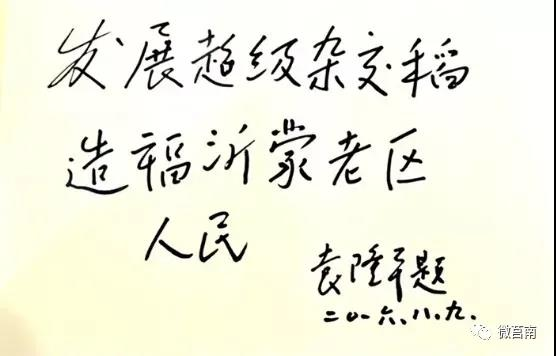 发展超级杂交稻
造福沂蒙老区
人民
袁隆平题
二〇一六.八.九.
微莒南